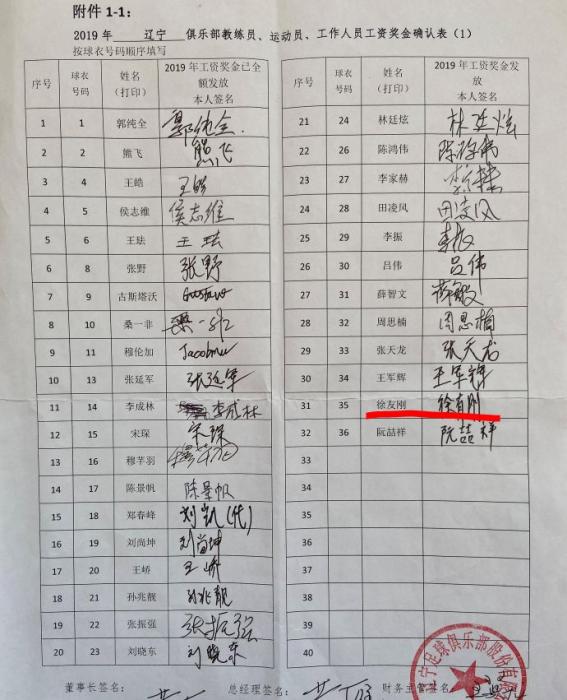 附件 1-1：
2019 年 辽宁 俱乐部教练员、运动员、工作人员工资奖金确认表（1）
按球衣号码顺序填写
序号 球衣号码 姓名（打印） 2019 年工资奖金已全额发放 本人签名
1 1 郭纯全 郭纯全
2 2 熊飞 熊飞
3 4 王皓 王皓
4 5 侯志维 侯志维
5 6 王珐 王珐
6 8 张野 张野
7 9 古斯塔沃 Gustavo
8 10 桑一非 桑一非
9 11 穆伦加 Jacob
10 13 张延军 张延军
11 14 李成林 李成林
12 15 宋琛 宋琛
13 16 穆芊羽
14 17 陈景帆 陈景帆
15 18 郑春峰 刘凯(代)
16 19 刘尚坤 刘尚坤
17 20 王峤 王峤
18 21 孙兆靓 孙兆靓
19 22 张振强 张振强
20 23 刘晓东 刘晓东
序号 球衣号码 姓名（打印） 2019 年工资奖金发放 本人签名
21 24 林廷炫 林廷炫
22 26 陈鸿伟
23 27 李家赫
24 28 田凌风 田凌风
25 29 李振 李振
26 30 吕伟 吕伟
27 31 薛智文
28 32 周思楠 周思楠
29 33 张天龙 张天龙
30 34 王军辉 王军辉
31 35 徐友刚 徐有刚
32 36 阮喆祥 阮喆祥
33
34
35
36
37
38
39
40
董事长签名： 总经理签名： 财务主管签名：
宁足球俱乐部股份有